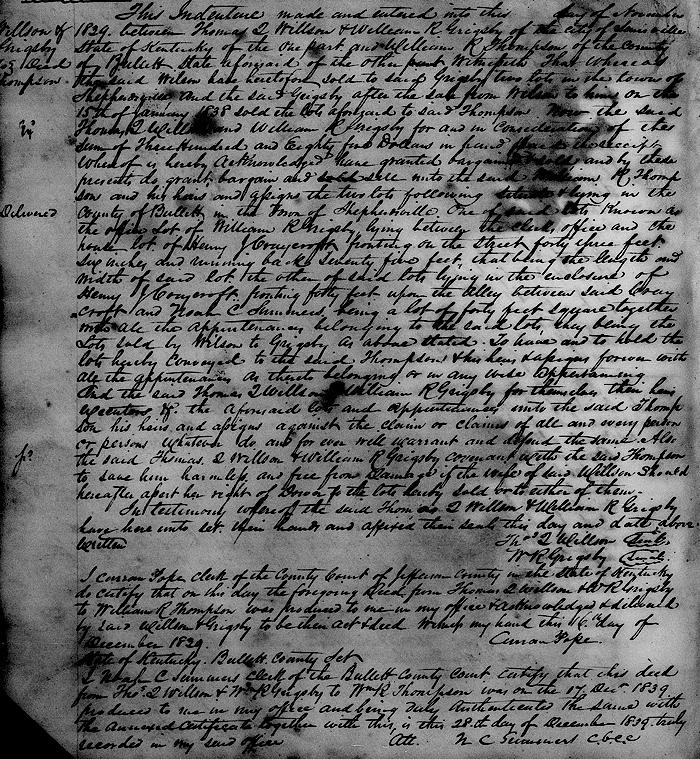 This Indenture made and entered into this day of November
Willson &
Grigsby
Deed
Thompson
1839. between Thomas Q Willson & William R Grigsby of the city of Louisville
State of Kentucky of the one part and William R Thompson of the County
of Bullett State aforsaid of the other part Witnesseth That whereas
the said Wilson have heretofore sold to said Grigsby two lots in the town of
Shepherdsville And the said Grigsby after the sale from Wilson to him on the
15th of January 1838 sold the lots aforsaid to said Thompson Now the said
Thomas Q Willson and William R Grigsby for and in Consideration of the
sum of Three Hundred and Eighty five Dollars in hand the receipt
Whereof is hereby acknowledged have granted bargained & sold and by these
presents do grant, bargain and sell unto the said William R Thomp
son and his heirs and assigns the two lots following & lying in the
Delivered
County of Bullett in the Town of Shepherdsville One of said lots Known as
the office Lot of William R Grigsby lying between the Clerks office and the
house lot of Henny J Craycroft fronting on the Street forty three feet
Six inches and running back Seventy five feet, that being the length and
width of said lot, the other of said lots lying in the enclosure of
Henny J Craycroft, fronting forty feet upon the Alley between said Cray
croft and Noah C Summers, being a lot of forty feet square together
with all the appurtenances belonging to the said lots, they being the
Lots sold by Wilson to Grigsby as above stated. To have and to hold the
lots hereby Conveyed to the said Thompson & his heirs & assigns forever with
all the appurtenances as thereto belonging or in any wise Appertaining
And the said Thomas Q Willson & William R Grigsby for themselves their heirs
executors &c. the aforesaid lots and appurtenances unto the said Thomp
son his heirs and assigns against the claim or claims of all and every person
or persons whatever do and for ever will warrant and defend the same. Also
the said Thomas. Q Willson & William R Grigsby covenant with the said Thompson
to save him harmless, and free from Damage if the wife of said Willson Should
hereafter assert her right of Dower to the lots hereby sold or to either of them
In testimony whereof the said Thomas Q Willson & William R Grigsby
have here unto set their hands and affixed their seals this day and date above
written
Thos Q Willson Seal
W R Grigsby Seal
I Curran Pope Clerk of the County Court of Jefferson County in the State of Kentucky
do certify that on this day the foregoing Deed, from Thomas Q Willson & W R Grigsby
to William R Thompson was produced to me in my office & acknowledged & delivered
by said Willson & Grigsby to be their Act & Deed Witness my hand this 16th day of
December 1839.
Curran Pope.
State of Kentucky. Bullett County Sct
I Noah C Summers Clerk of the Bullett County Court, certify that this deed
from Thos Q Willson & Wm R Grigsby to Wm R Thompson was on the 17 Decr 1839
produced to me in my office and being duly Authenticated the same with
the annexed certificate together with this, is this 28th day of December 1839. truly
recorded in my said office
Att. N C Summers C.B.C.C